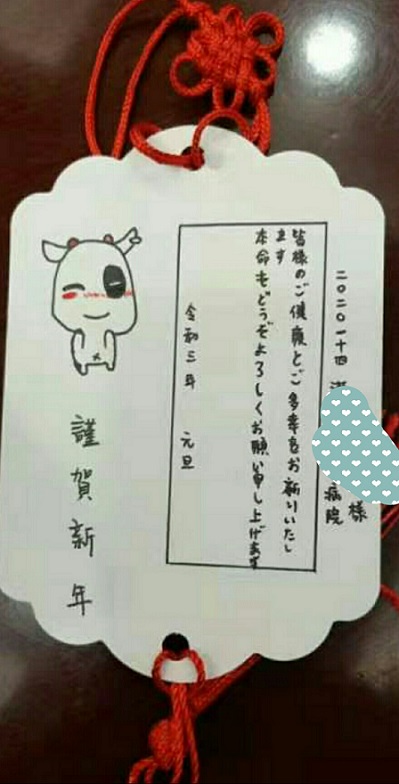 二〇二〇一十四
病院
様
皆様のご健康とご多幸をお祈りいたし
ます
本命もどうぞよろしくお願い申し上げます
令和三年　元旦
謹賀新年